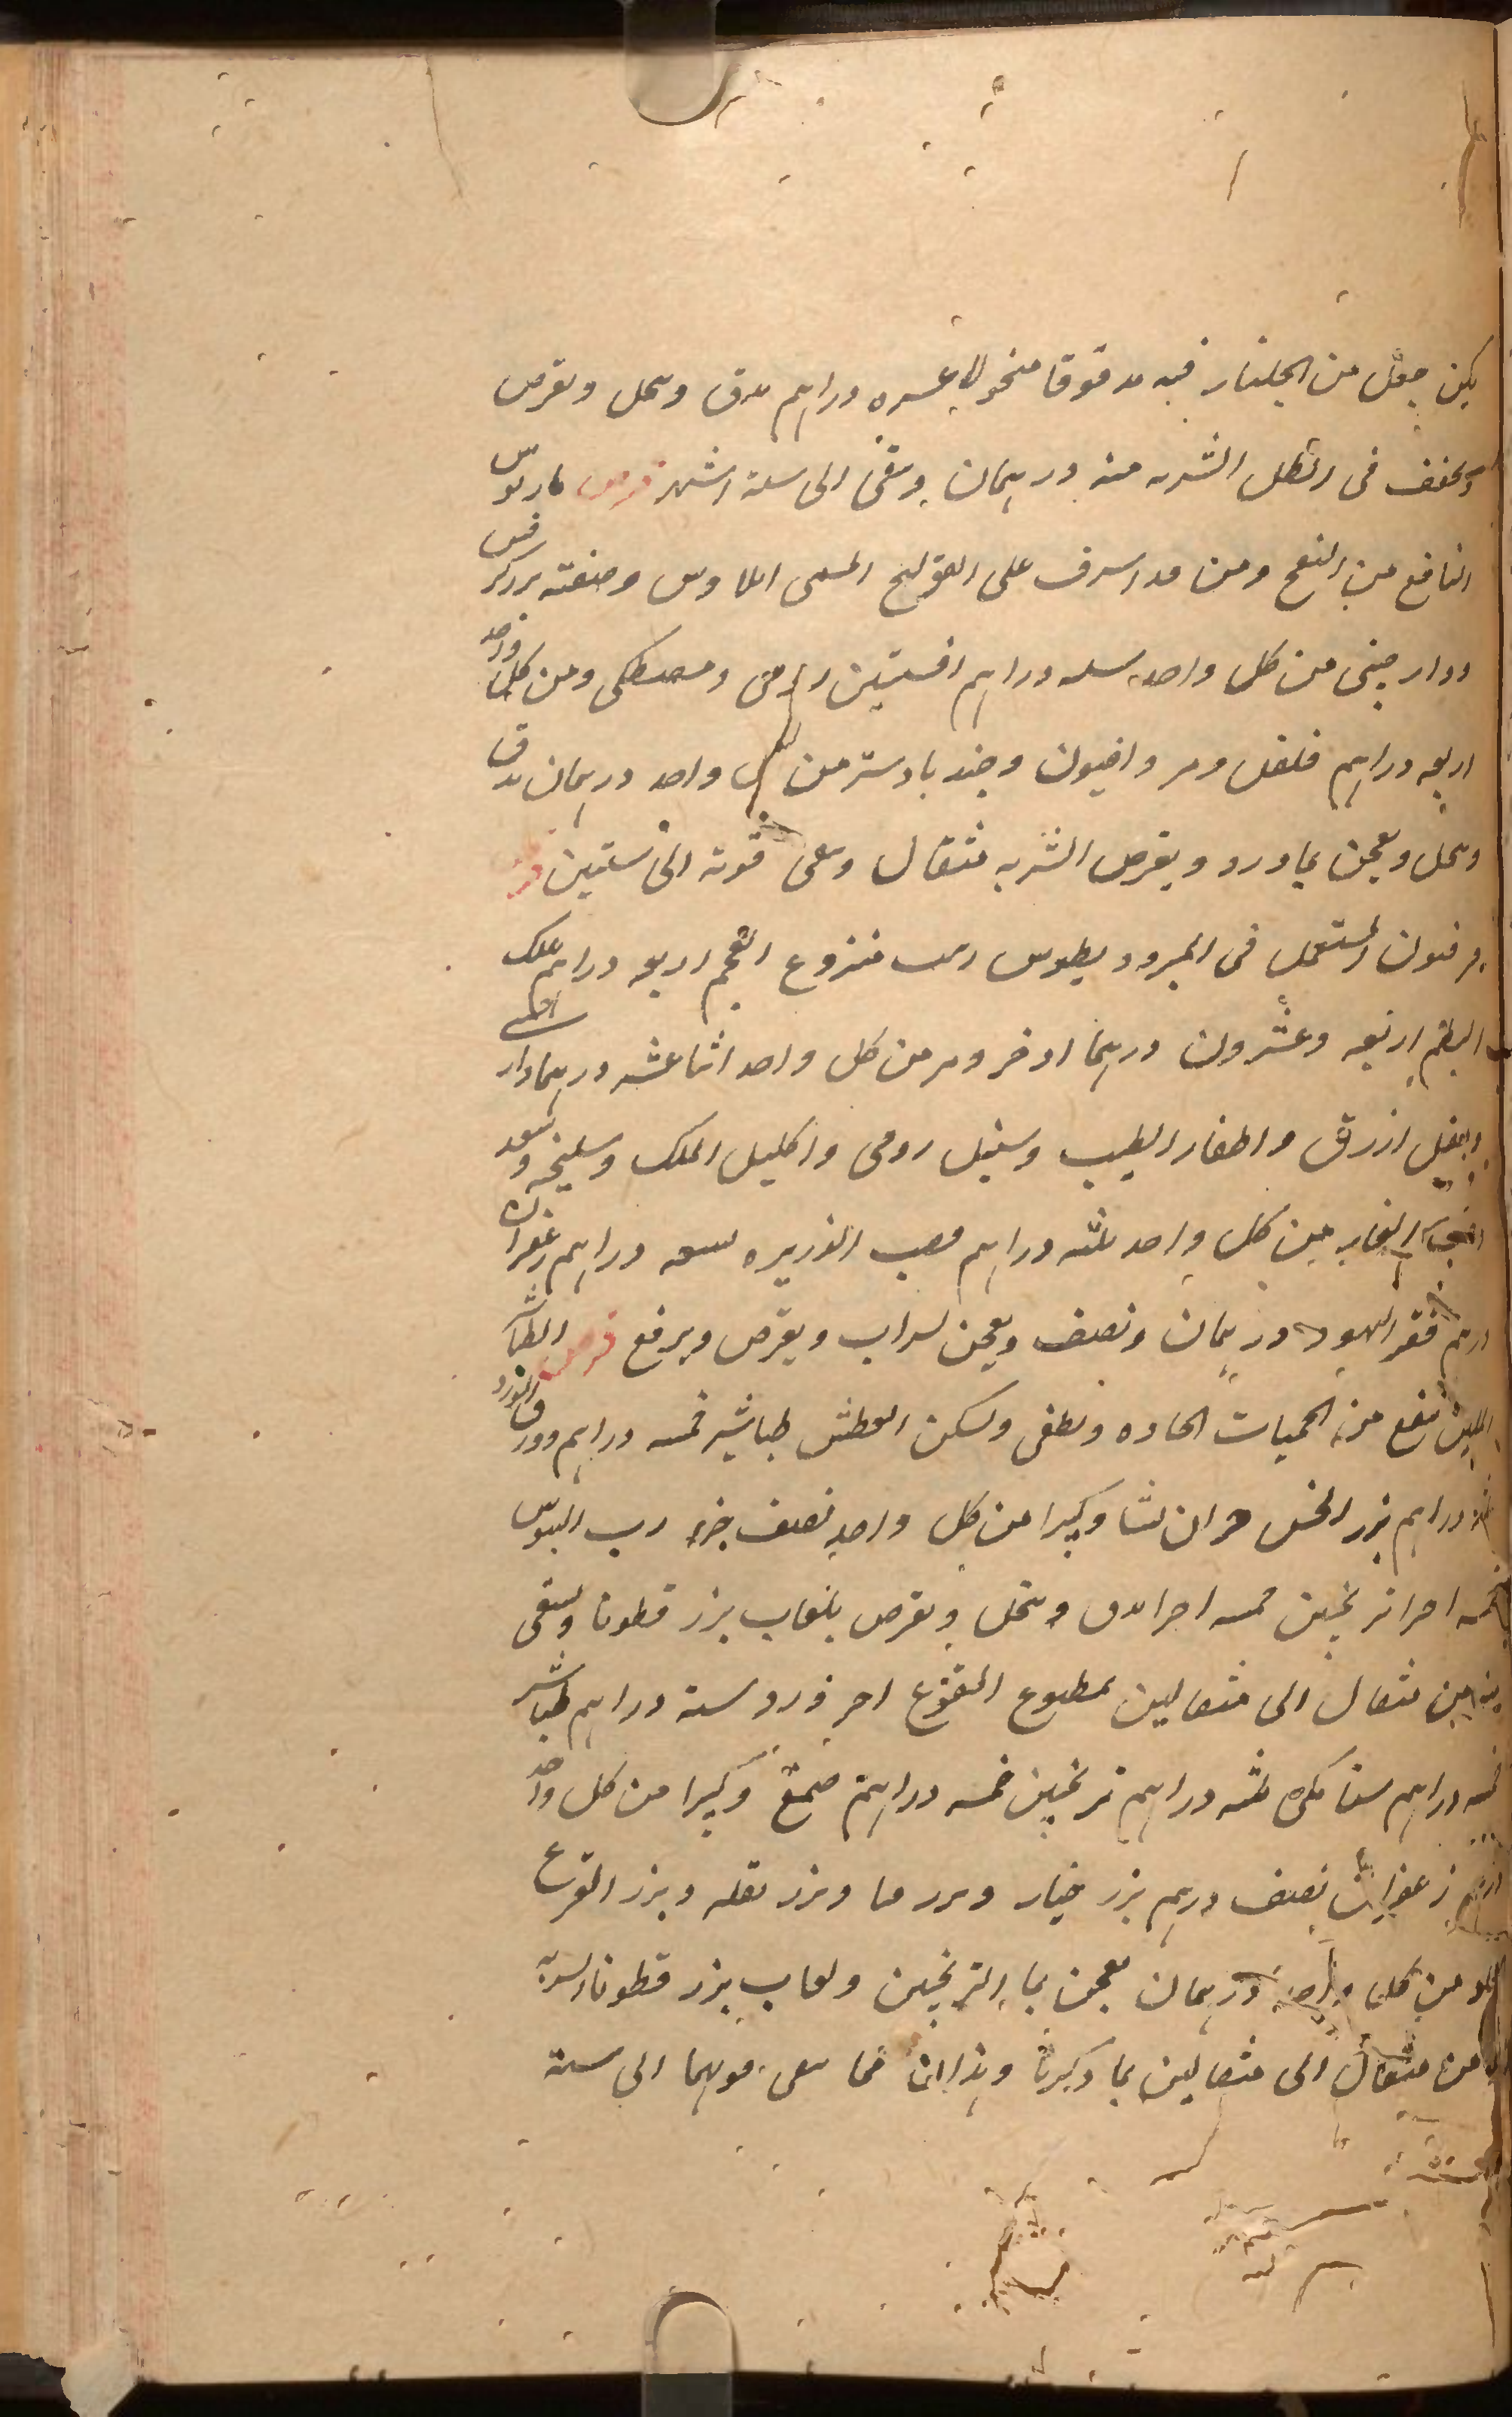 يكن جعل من الجلنار فيه مدقوقا منخولا عشره دراهم يدق وينخل ويقرص
ويجفف فى الظل الشربه منه درهمان ويبقى الى ستة اشهر قرص
النافع من النفخ ومن قد اسرف على القولنج المسمى ايلاوس وصنعته بزر كرفس
ودار صينى من كل واحد سته دراهم افسنتين رومى ومصطكى ومن كل واحد
اربعه دراهم فلفل ومر وافيون وجند بادستر من كل واحد درهمان يدق
وينخل ويعجن بماورد ويقرص الشربه مثقال وتبقى قوته الى سنتين
المستعمل فى منزوع العجم اربعه دراهم علك
البطم اربعه وعشرون درهما اذخر ومر من كل واحد اثنا عشر درهما دار
ازرق واظفار الطيب وسنبل رومى واكليل الملك وسليخه وسعد
الغار من كل واحد ثلثه دراهم قصب الذريره تسعه دراهم زعفران
درهم فقر اليهود درهمان ونصف ويعجن بشراب ويقرص ويرفع قرص الطباشير
الملين ينفع من الحميات الحاده ويطفى ويسكن العطش طباشير خمسه دراهم وورق الورد
دراهم بزر الخس جزان نشا وكثيرا من كل واحد نصف جزء رب السوس
ترنجبين خمسه اجزا يدق وينخل ويقرص بلعاب بزر قطونا ويسقى
من مثقال الى مثقالين بمطبوع اخر ورد سته دراهم طباشير
خمسه دراهم سنا مكى ثلثه دراهم ترنجبين خمسه دراهم صمغ وكثيرا من كل واحد
درهم زعفران نصف درهم بزر خيار وبزر قثا وبزر بقله وبزر القرع
من كل واحد درهمان يعجن بما الترنجبين ولعاب بزر قطونا الشربه
من مثقال الى مثقالين بما ذكرنا وهذان مما تبقى قوتهما الى سنة